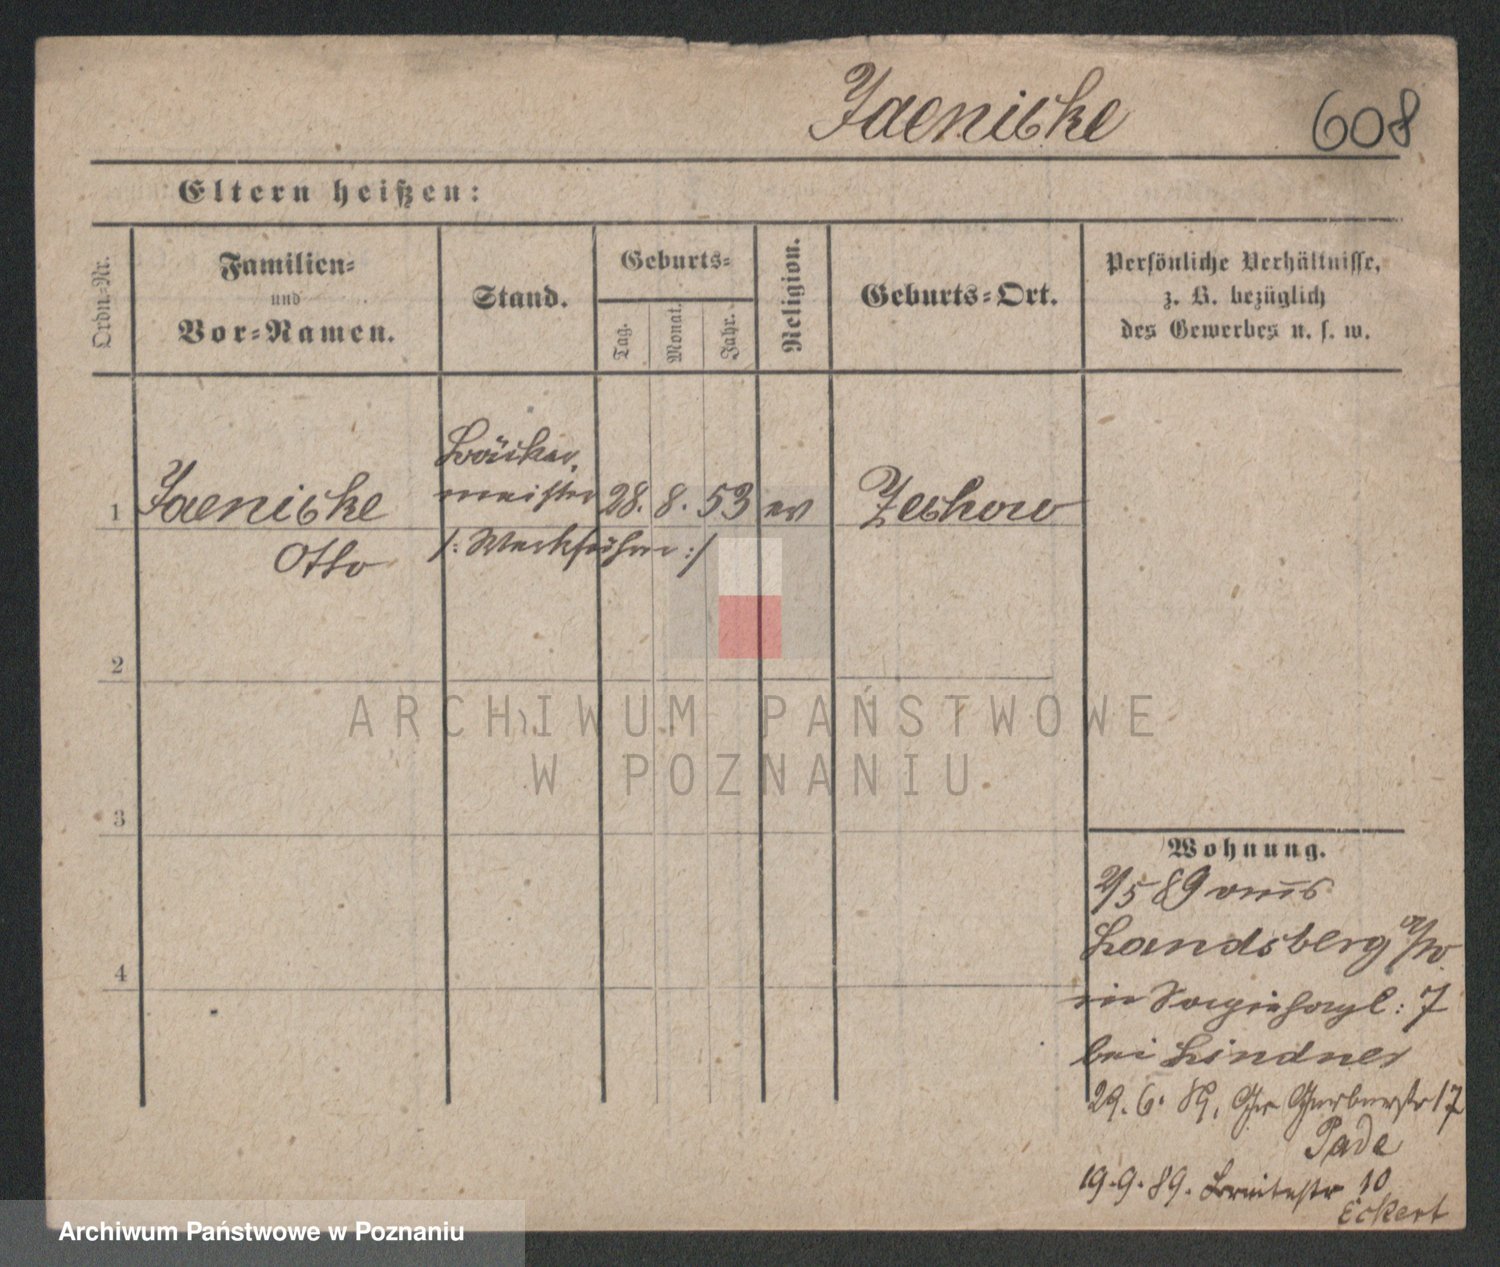 Jaenicke 608
Eltern heißen:
Ordn.-Nr.
Familien-
und
Vor-Namen.
Stand.
Geburts-
Tag.
Monat.
Jahr.
Religion.
Geburts-Ort.
Persönliche Verhältnisse,
z. B. bezüglich
des Gewerbes u. s. w.
Bäcker,
1 Jaenicke meister 28. 8. 53 ev Zechow
Otto /: Werkführer :/
2
ARCHIWUM PAŃSTWOWE
W POZNANIU
3
Wohnung.
2/5 89 aus
Landsberg a/W
4
in : 7
bei Lindner
29. 6. 89. Gr Gerberstr 17
Pade
19. 9. 89. Breitestr 10
Eckert
Archiwum Państwowe w Poznaniu